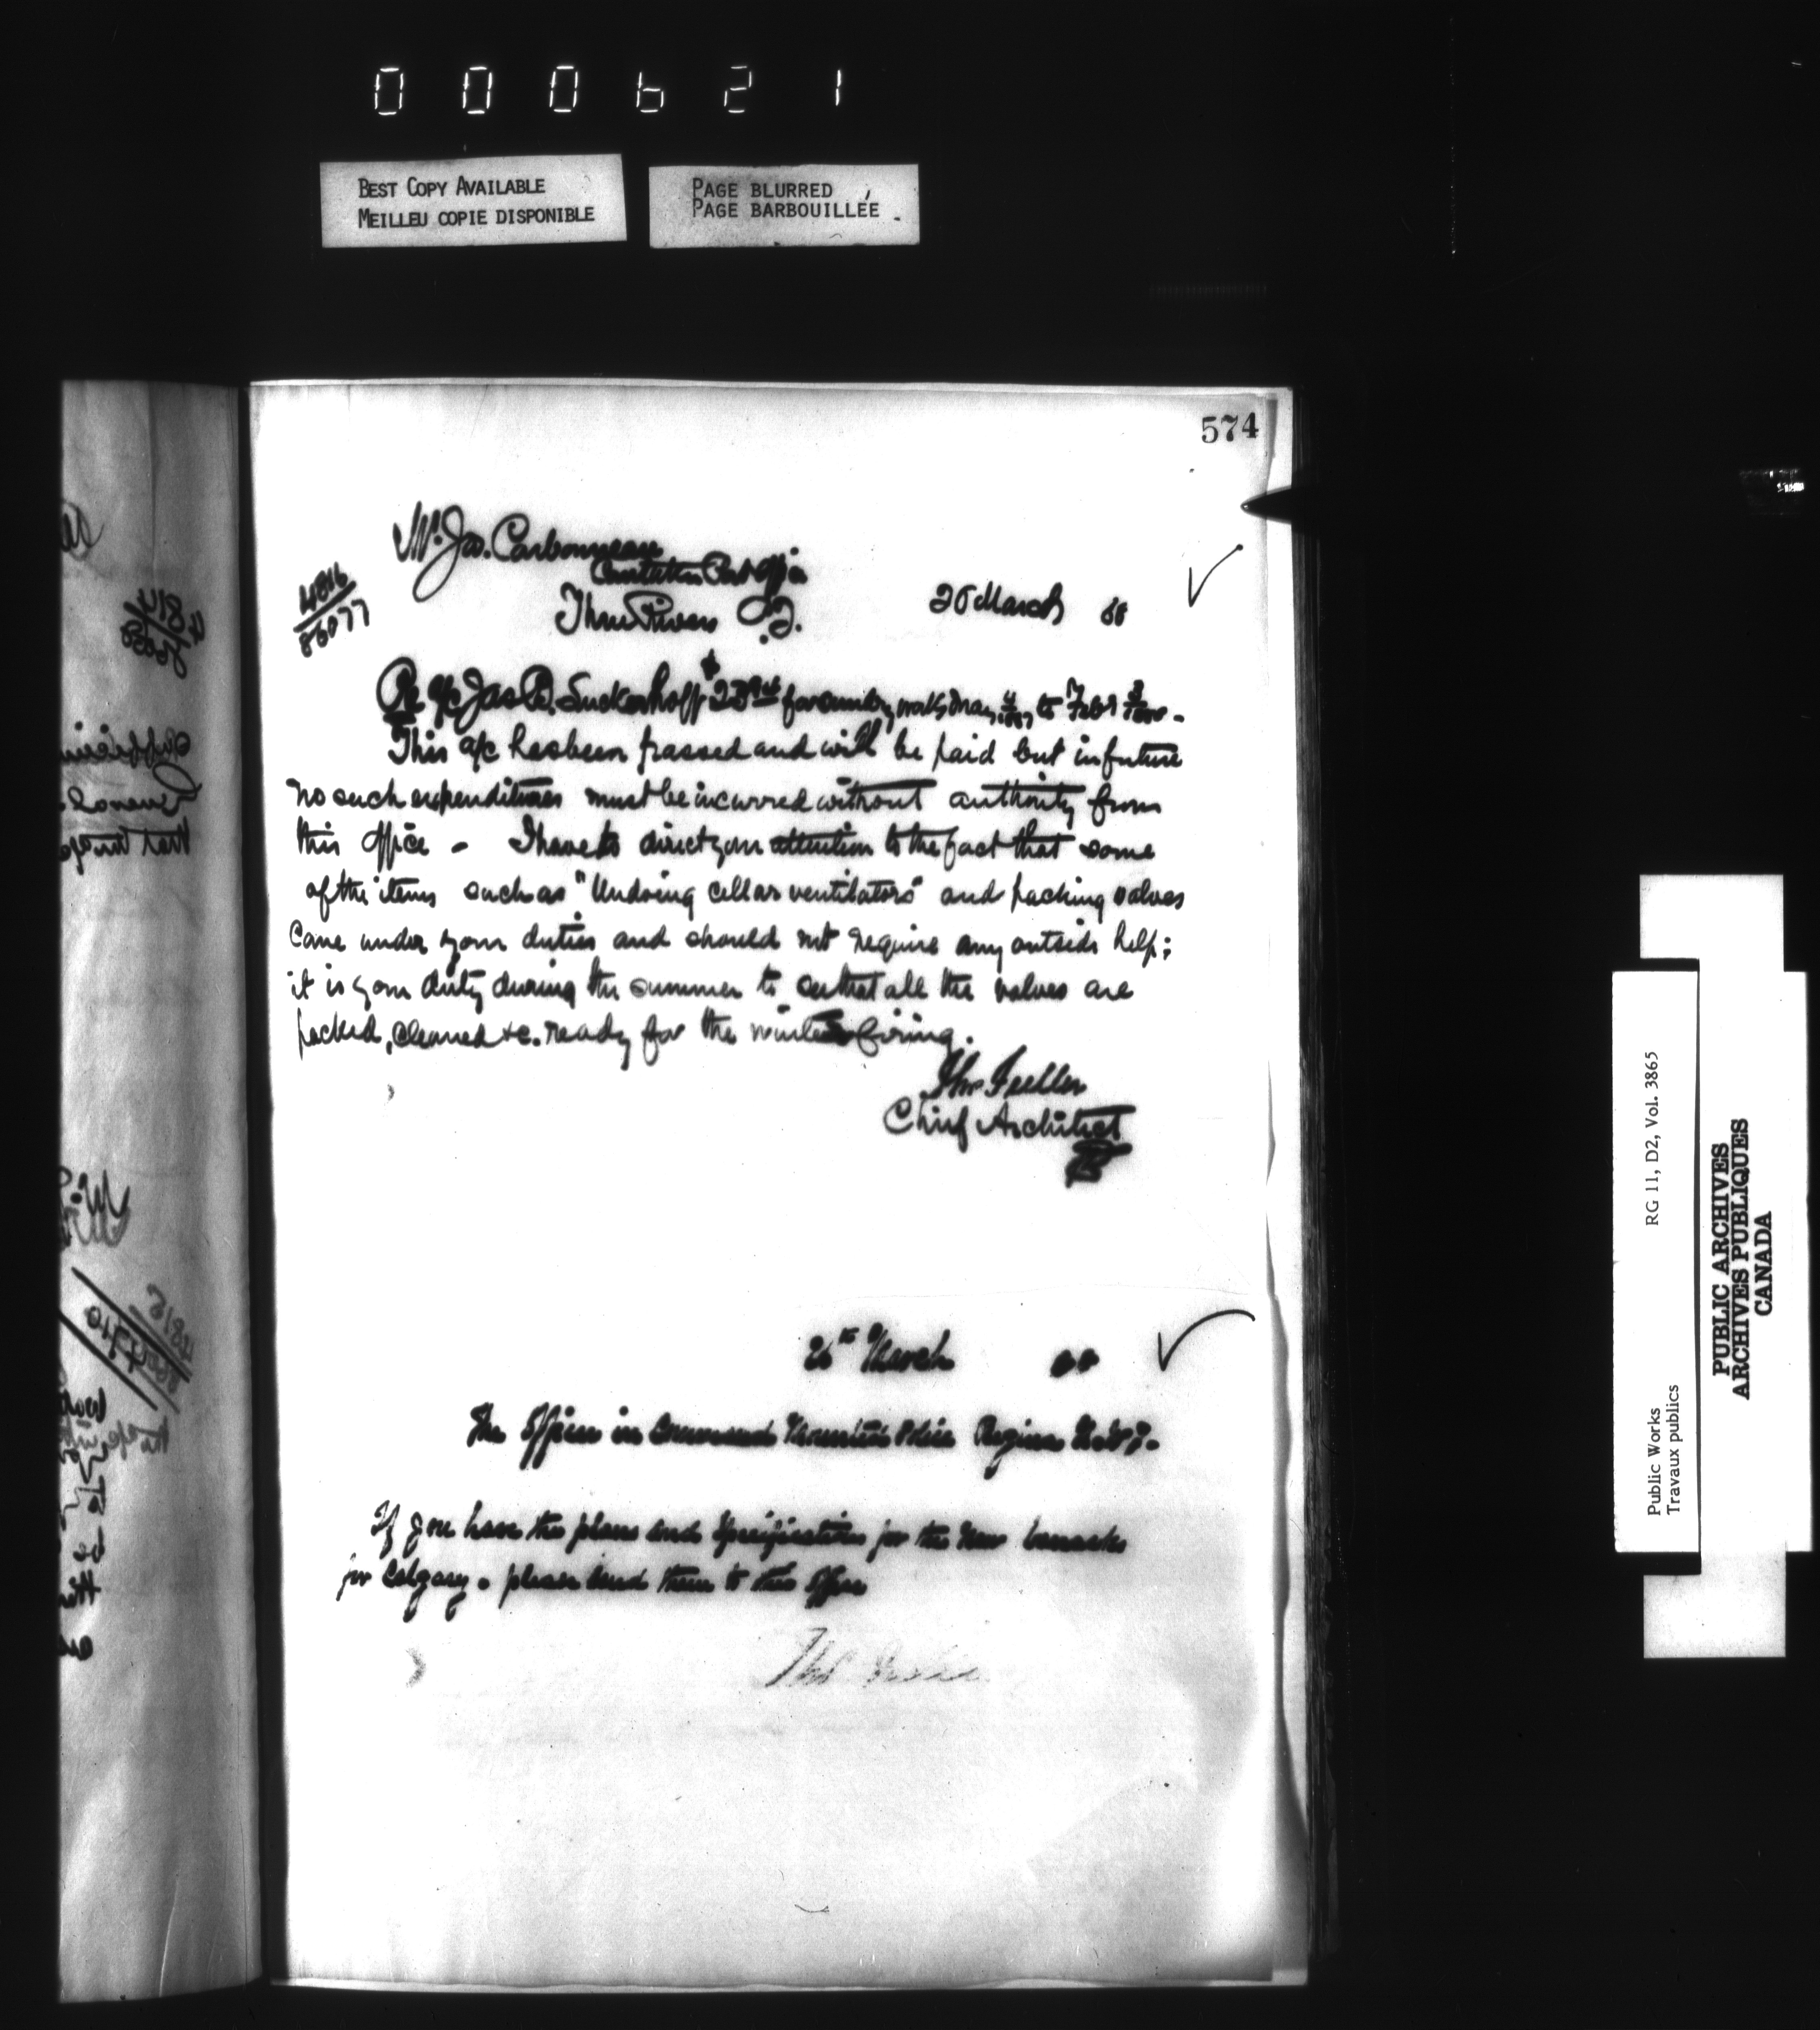 000621
BEST COPY AVAILABLE
MEILLEU COPIE DISPONIBLE
PAGE BLURRED
PAGE BARBOUILLÉE
574
Mr. Jos. Carbonneau
Caretaker Post Office
Three Rivers P.Q.
26 March 88
4816
86077
Re a/c Jas R. for sundry works May to Feby
This a/c has been passed and will be paid but in future
no such expenditures must be incurred without authority from
this office - I have to direct your attention to the fact that some
of the items such as "Undoing cellar ventilators" and packing valves
Came under your duties and should not require any outside help;
it is your duty during the summer to see that all the valves are
packed, cleaned &c. ready for the winter firing.
Thos Fuller
Chief Architect
26th March 88
The Officer in Command Mounted Police Regina N.W.T.
If you have the plans and specifications for the new barracks
for Calgary. please send them to this office
Thos Fuller
Public Works
Travaux publics
RG 11, D2, Vol. 3865
PUBLIC ARCHIVES
ARCHIVES PUBLIQUES
CANADA